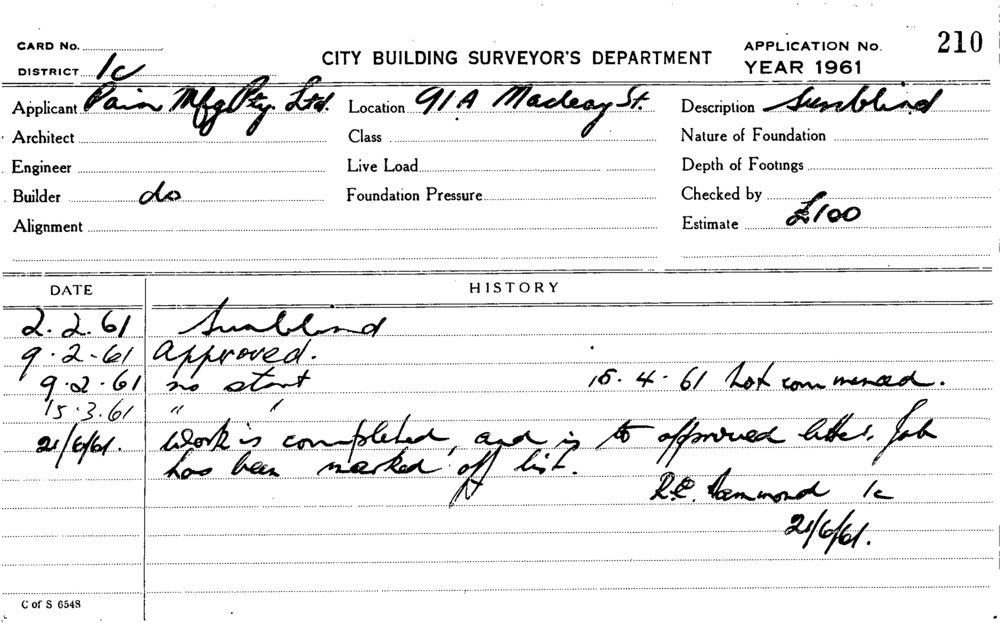 CARD No.
DISTRICT 1c
CITY BUILDING SURVEYOR'S DEPARTMENT
APPLICATION No. 210
YEAR 1961
Applicant Pain Mfg Pty. Ltd. Location 91A Macleay St. Description Sunblind
Architect Class Nature of Foundation
Engineer Live Load Depth of Footings
Builder do Foundation Pressure Checked by
Alignment Estimate £100
DATE HISTORY
2.2.61 Sunblind
9.2.61 Approved.
9.2.61 no start 15.4.61 Not commenced.
15.3.61 " "
21/6/61. Work is completed, and is to approved letter. Job
has been marked off list.
R.E. Hammond 1c
21/6/61.
C of S 6548